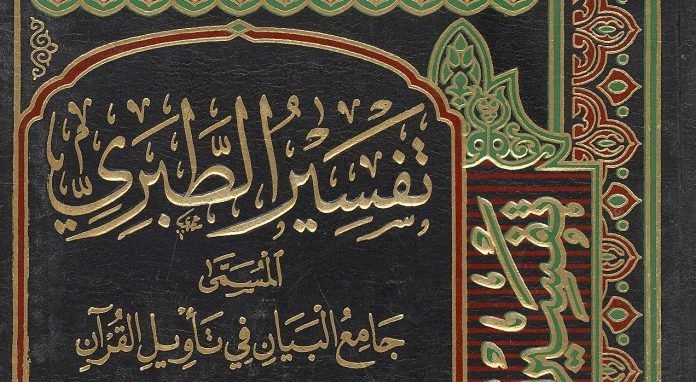 تَفْسِيرُ الطَّبَرِي
المُسَمَّى
جَامِعُ الْبَيَانِ فِي تَأْوِيلِ الْقُرْآنِ
تفسير